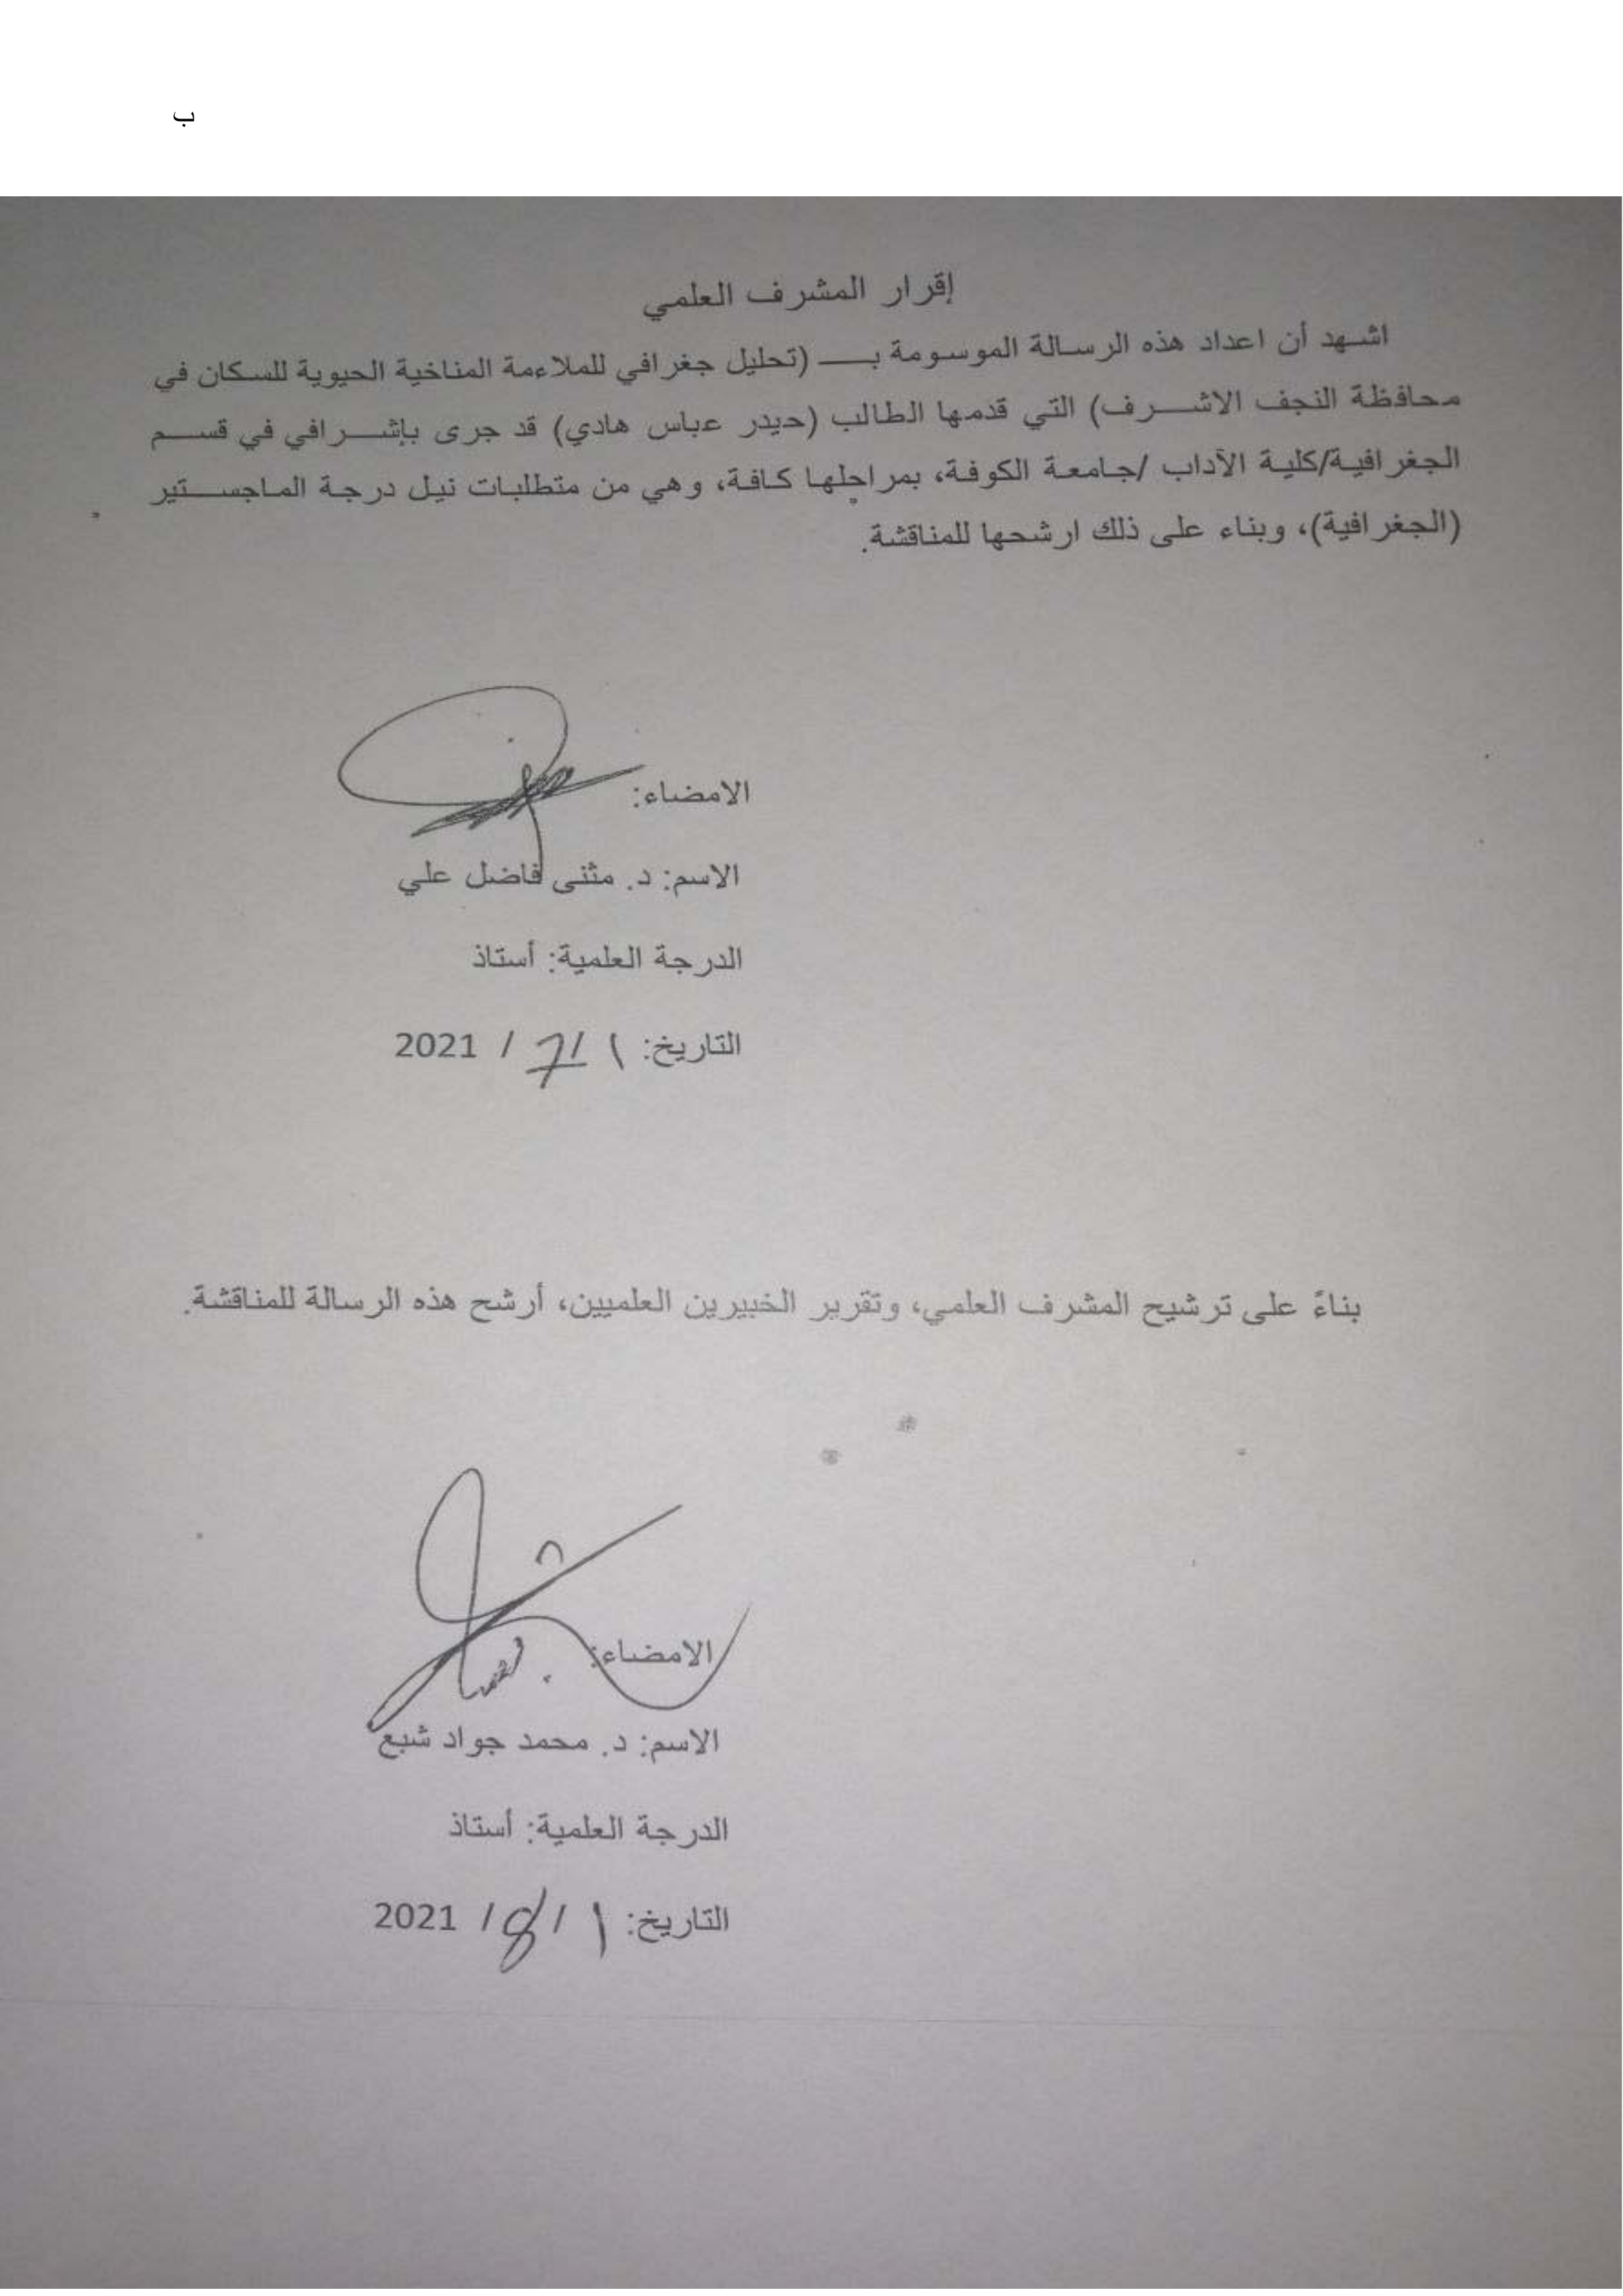 ب
إقرار المشرف العلمي
اشهد أن اعداد هذه الرسالة الموسومة بـ (تحليل جغرافي للملاءمة المناخية الحيوية للسكان في
محافظة النجف الاشرف) التي قدمها الطالب (حيدر عباس هادي) قد جرى بإشرافي في قسم
الجغرافية/كلية الآداب /جامعة الكوفة، بمراحلها كافة، وهي من متطلبات نيل درجة الماجستير
(الجغرافية)، وبناء على ذلك ارشحها للمناقشة.
الامضاء:
الاسم: د. مثنى فاضل علي
الدرجة العلمية: أستاذ
التاريخ: ١ /7 / 2021
بناءً على ترشيح المشرف العلمي، وتقرير الخبيرين العلميين، أرشح هذه الرسالة للمناقشة.
الامضاء:
الاسم: د. محمد جواد شبع
الدرجة العلمية: أستاذ
التاريخ: ١ /8 / 2021